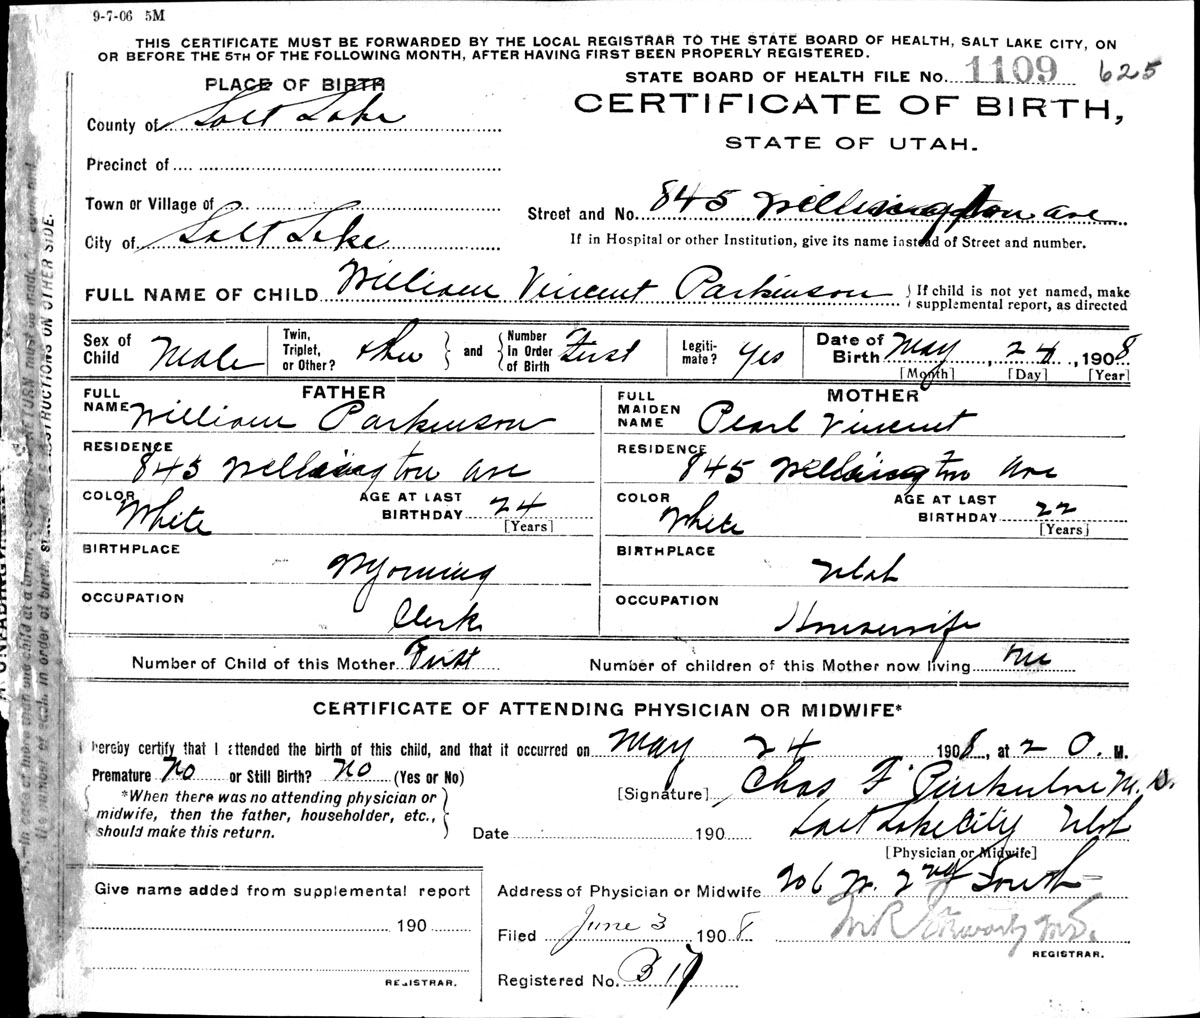 9-7-06 5M
THIS CERTIFICATE MUST BE FORWARDED BY THE LOCAL REGISTRAR TO THE STATE BOARD OF HEALTH, SALT LAKE CITY, ON
OR BEFORE THE 5TH OF THE FOLLOWING MONTH, AFTER HAVING FIRST BEEN PROPERLY REGISTERED.
STATE BOARD OF HEALTH FILE No. 1109 625
CERTIFICATE OF BIRTH,
STATE OF UTAH.
PLACE OF BIRTH
County of Salt Lake
Precinct of
Town or Village of
City of Salt Lake
Street and No. 845 Wellington ave
If in Hospital or other Institution, give its name instead of Street and number.
FULL NAME OF CHILD William Vincent Parkinson } If child is not yet named, make
supplemental report, as directed
Sex of Child Male
Twin, Triplet, or Other? other } and { Number In Order of Birth First
Legiti-mate? Yes
Date of Birth May, 24, 1908
[Month] [Day] [Year]
FATHER
FULL NAME William Parkinson
RESIDENCE 845 Wellington Ave
COLOR White AGE AT LAST BIRTHDAY 24 [Years]
BIRTHPLACE Wyoming
OCCUPATION Clerk
MOTHER
FULL MAIDEN NAME Pearl Vincent
RESIDENCE 845 Wellington Ave
COLOR White AGE AT LAST BIRTHDAY 22 [Years]
BIRTHPLACE Utah
OCCUPATION Housewife
Number of Child of this Mother First Number of children of this Mother now living one
CERTIFICATE OF ATTENDING PHYSICIAN OR MIDWIFE*
I hereby certify that I attended the birth of this child, and that it occurred on May 24 1908, at 2 M.
Premature No or Still Birth? No (Yes or No)
{ *When there was no attending physician or
midwife, then the father, householder, etc.,
should make this return. }
[Signature] Chas F. M.D.
Date 190 Salt Lake City Utah
[Physician or Midwife]
Address of Physician or Midwife 206 W. 2nd South
Filed June 3 1908 M.D.
REGISTRAR.
Registered No. B 17
Give name added from supplemental report
190
REGISTRAR.
INSTRUCTIONS ON OTHER SIDE.